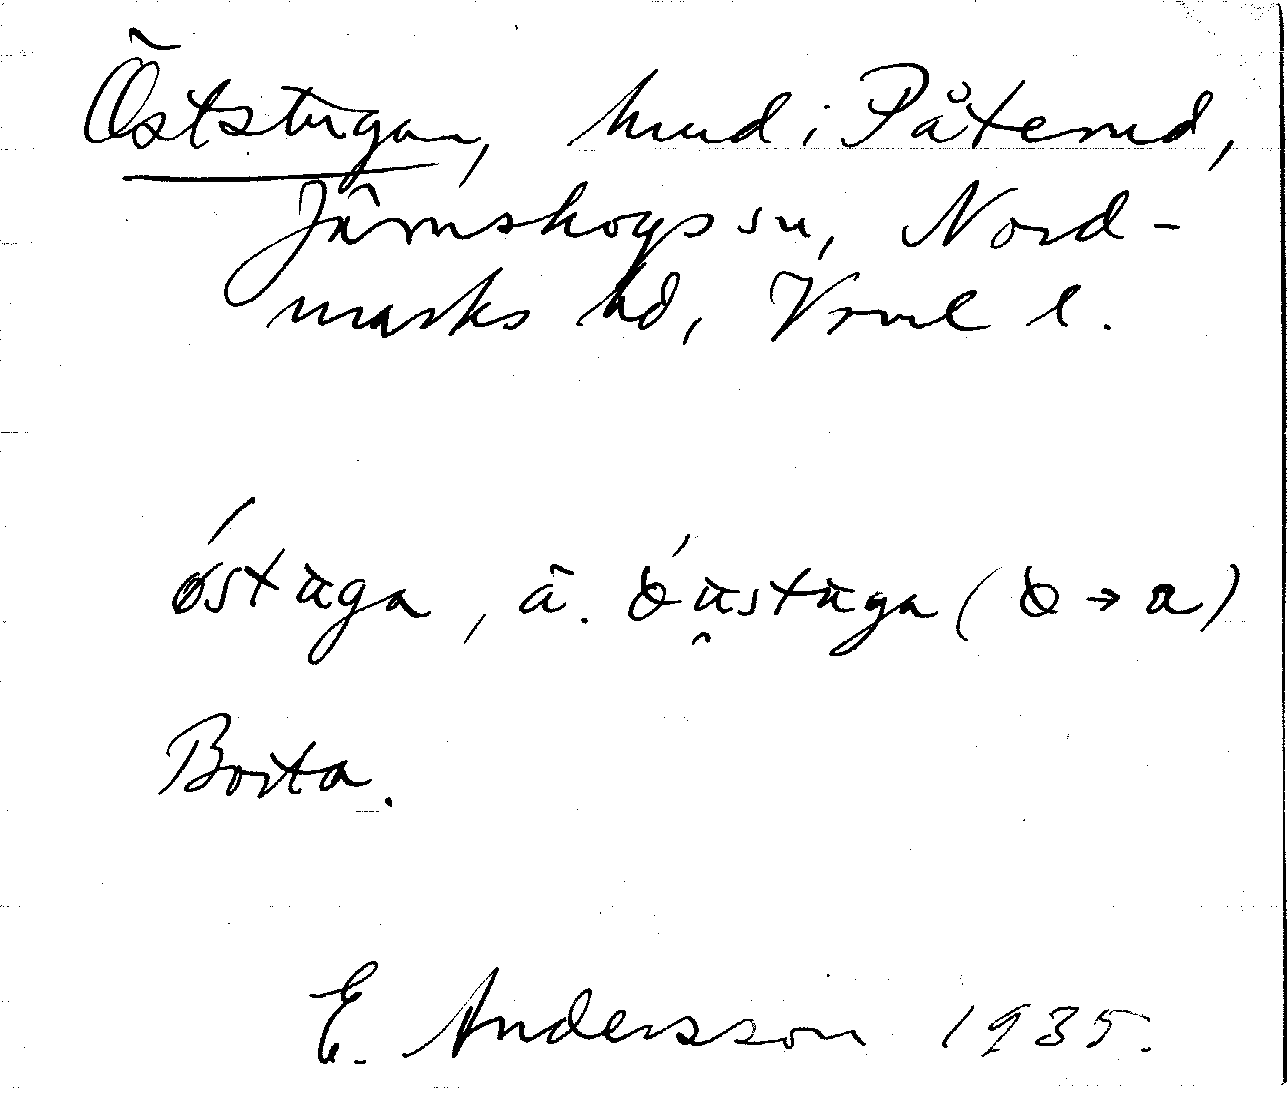 Öststugan, hmd i Påterud,
Järnskogs sn, Nord-
marks hd, Vrml l.
östuga, ä. 
Borta.
E. Andersson 1935.